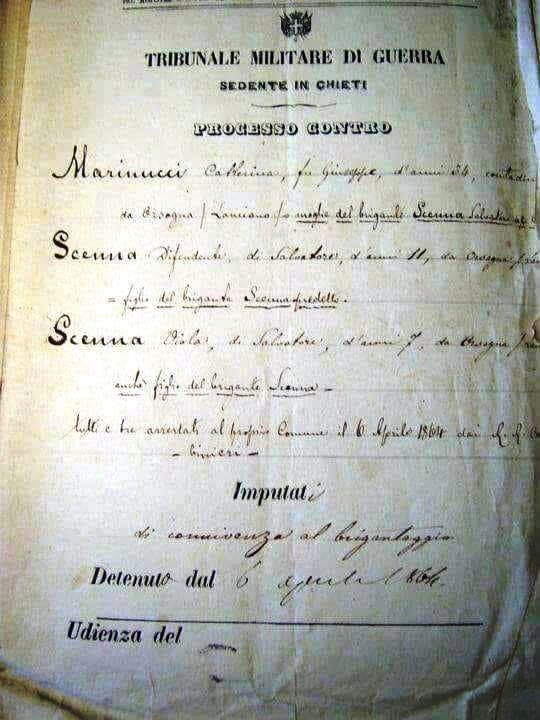 TRIBUNALE MILITARE DI GUERRA
SEDENTE IN CHIETI
PROCESSO CONTRO
Marinucci Catterina, fu Giuseppe, d'anni 34, contadin
da Orsogna / Lanciano / moglie del brigante Scenna Salvatore
Scenna Difendente, di Salvatore, d'anni 11, da Orsogna
= figlio del brigante Scenna predetto.
Scenna Viola, di Salvatore, d'anni 7, da Orsogna
anche figlio del brigante Scenna -
tutti e tre arrestati al proprio Comune il 6 Aprile 1864 dai R. R. Ca
- binieri -
Imputati
di connivenza al brigantaggio
Detenuto dal 6 aprile 1864
Udienza del